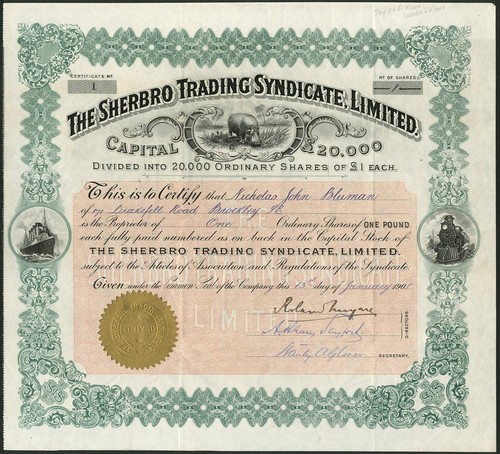 CERTIFICATE Nº
1
Nº OF SHARES
1
THE SHERBRO TRADING SYNDICATE, LIMITED.
CAPITAL £20,000
DIVIDED INTO 20,000 ORDINARY SHARES OF £1 EACH.
This is to Certify that Nicholas John Bluman
of Brakefell Road Brockley SE
is the Proprietor of One Ordinary Shares of ONE POUND
each fully paid numbered as on back in the Capital Stock of
THE SHERBRO TRADING SYNDICATE, LIMITED.
subject to the Articles of Association and Regulations of the Syndicate.
Given under the Common Seal of the Company this 13th day of January 1908
LIMITED
DIRECTORS.
SECRETARY.